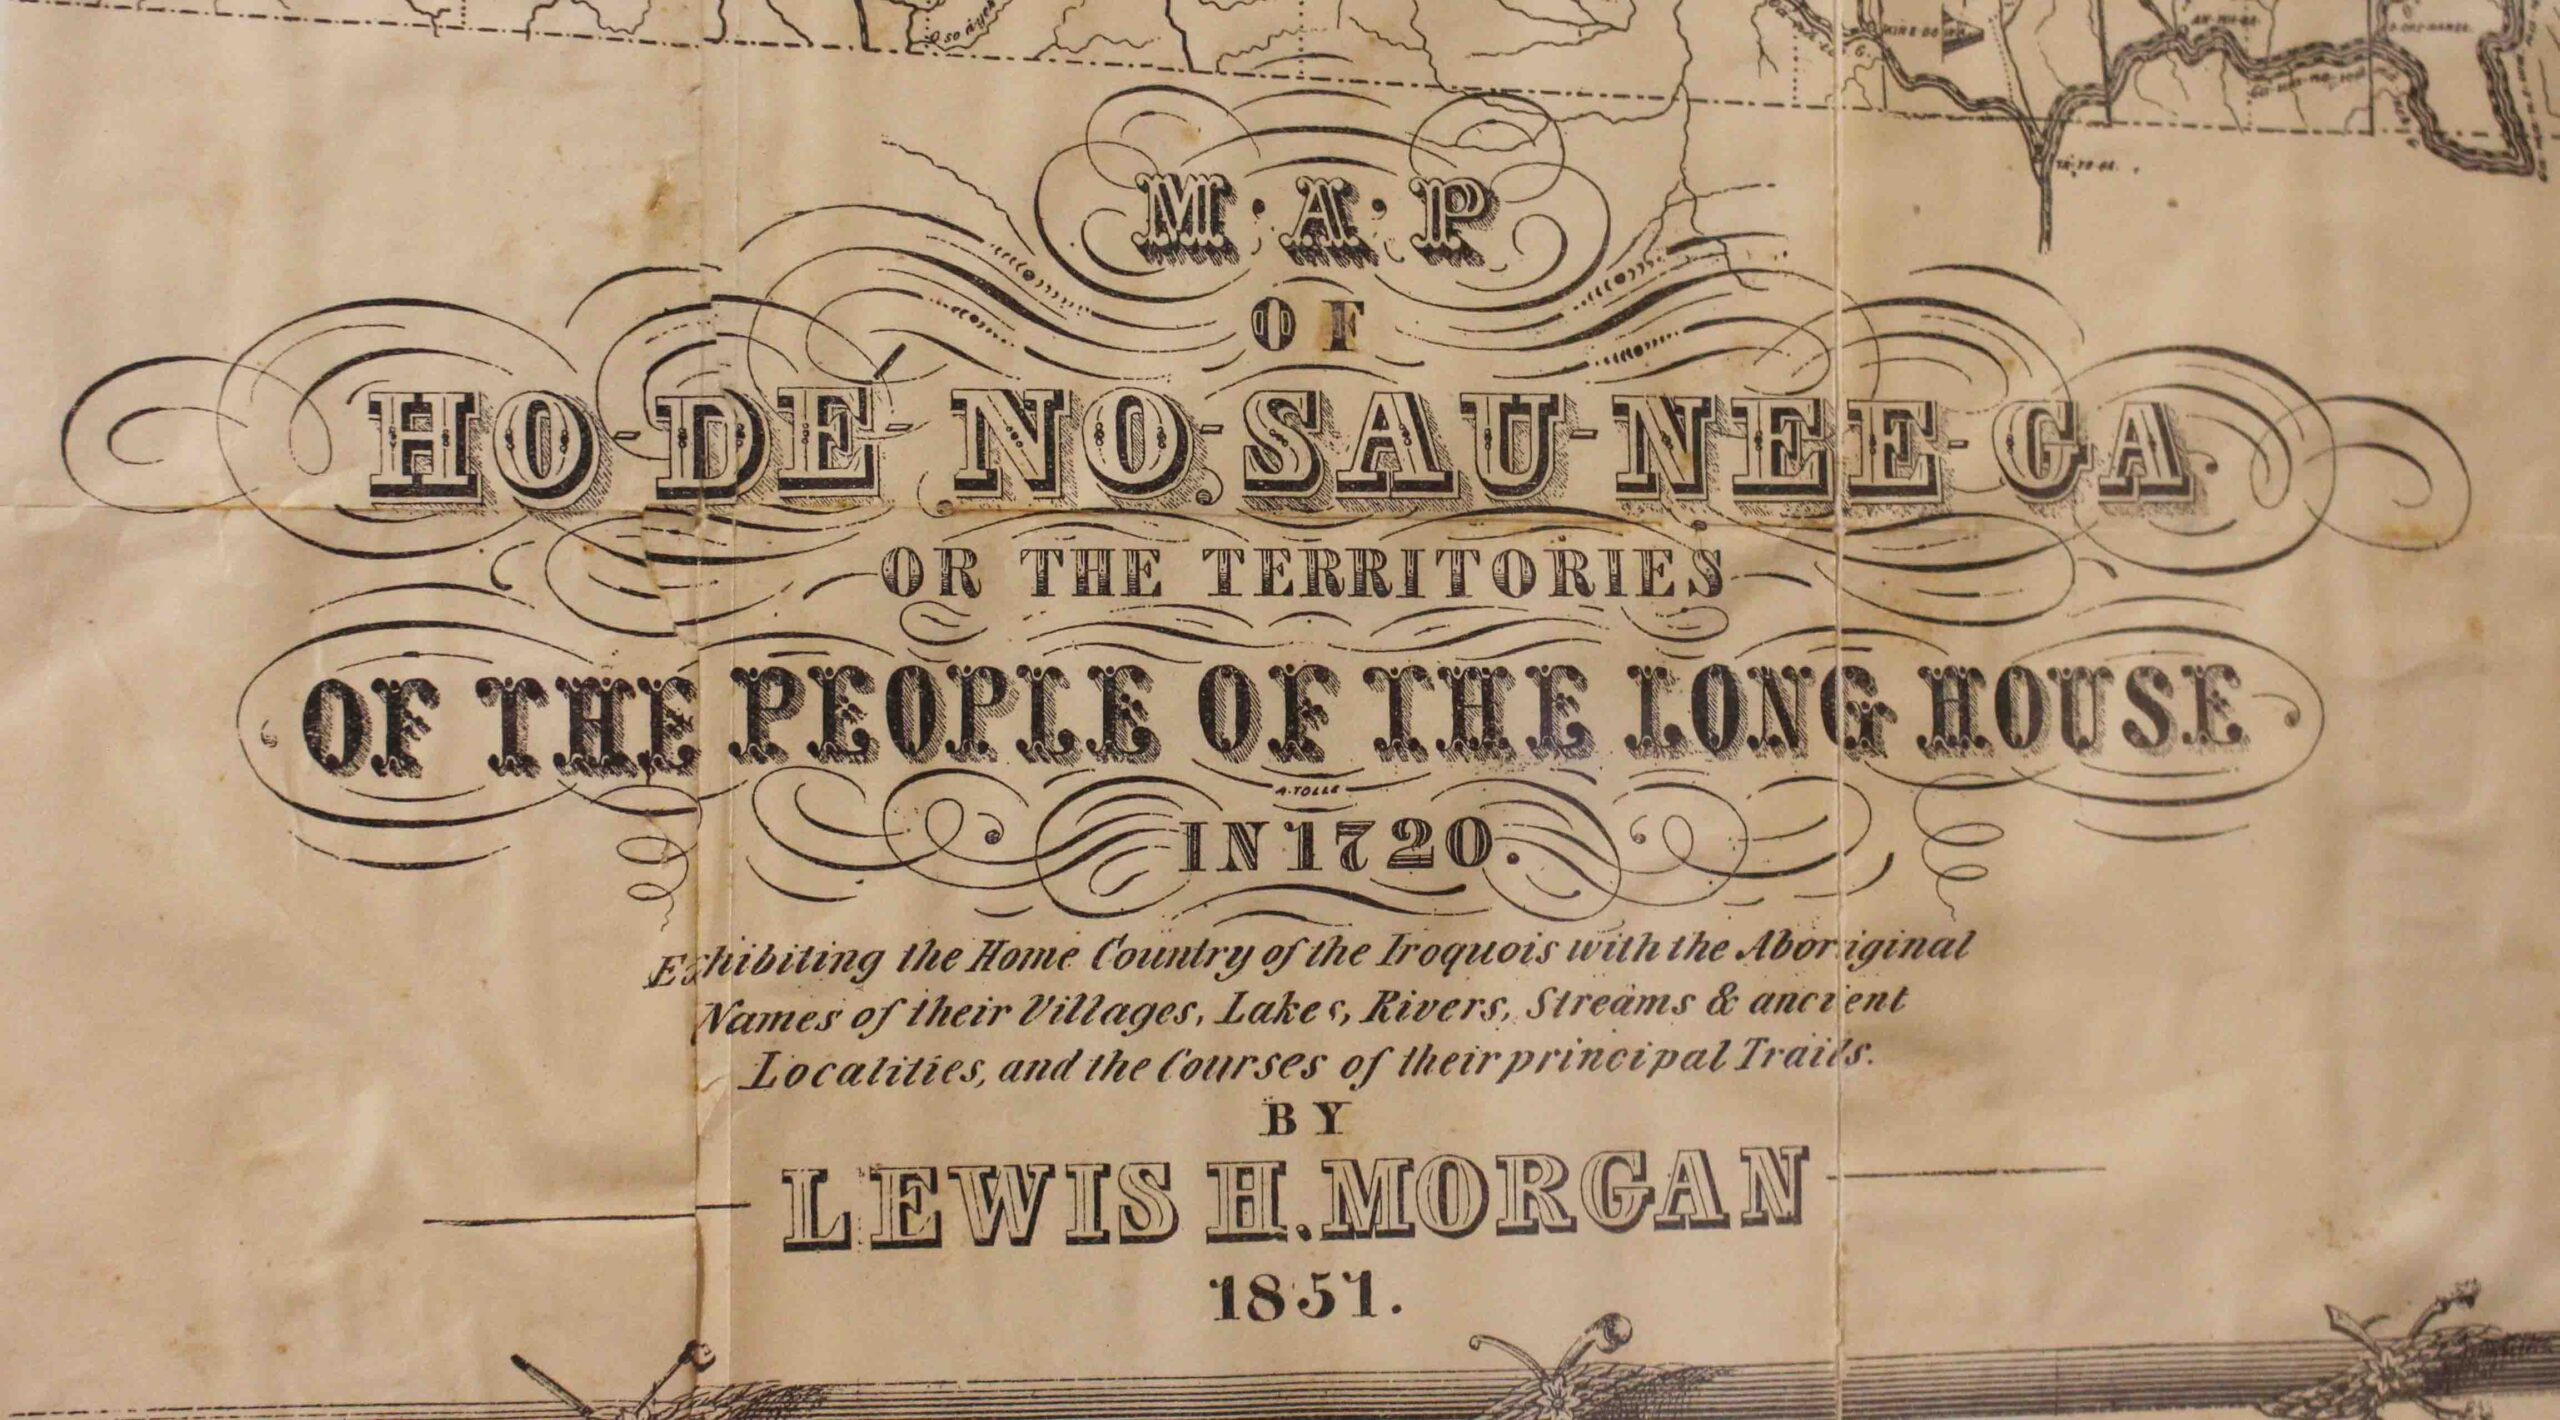 O so á-yeh
TA-YO-GA.
M·A·P
OF
HO-DÉ-NO-SAU-NEE-GA
OR THE TERRITORIES
OF THE PEOPLE OF THE LONG HOUSE
A.TOLLE
IN 1720.
Exhibiting the Home Country of the Iroquois with the Aboriginal
Names of their Villages, Lakes, Rivers, Streams & ancient
Localities, and the Courses of their principal Trails.
BY
LEWIS H. MORGAN
1851.